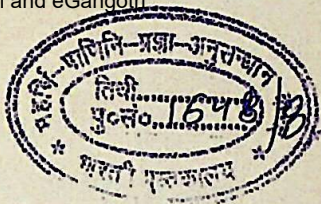 and eGangotri
महर्षि-पाणिनि-प्रज्ञा-अनुसन्धान
तिथी..............
पु०सं०.1648/B
* भारती पुस्तकालय *